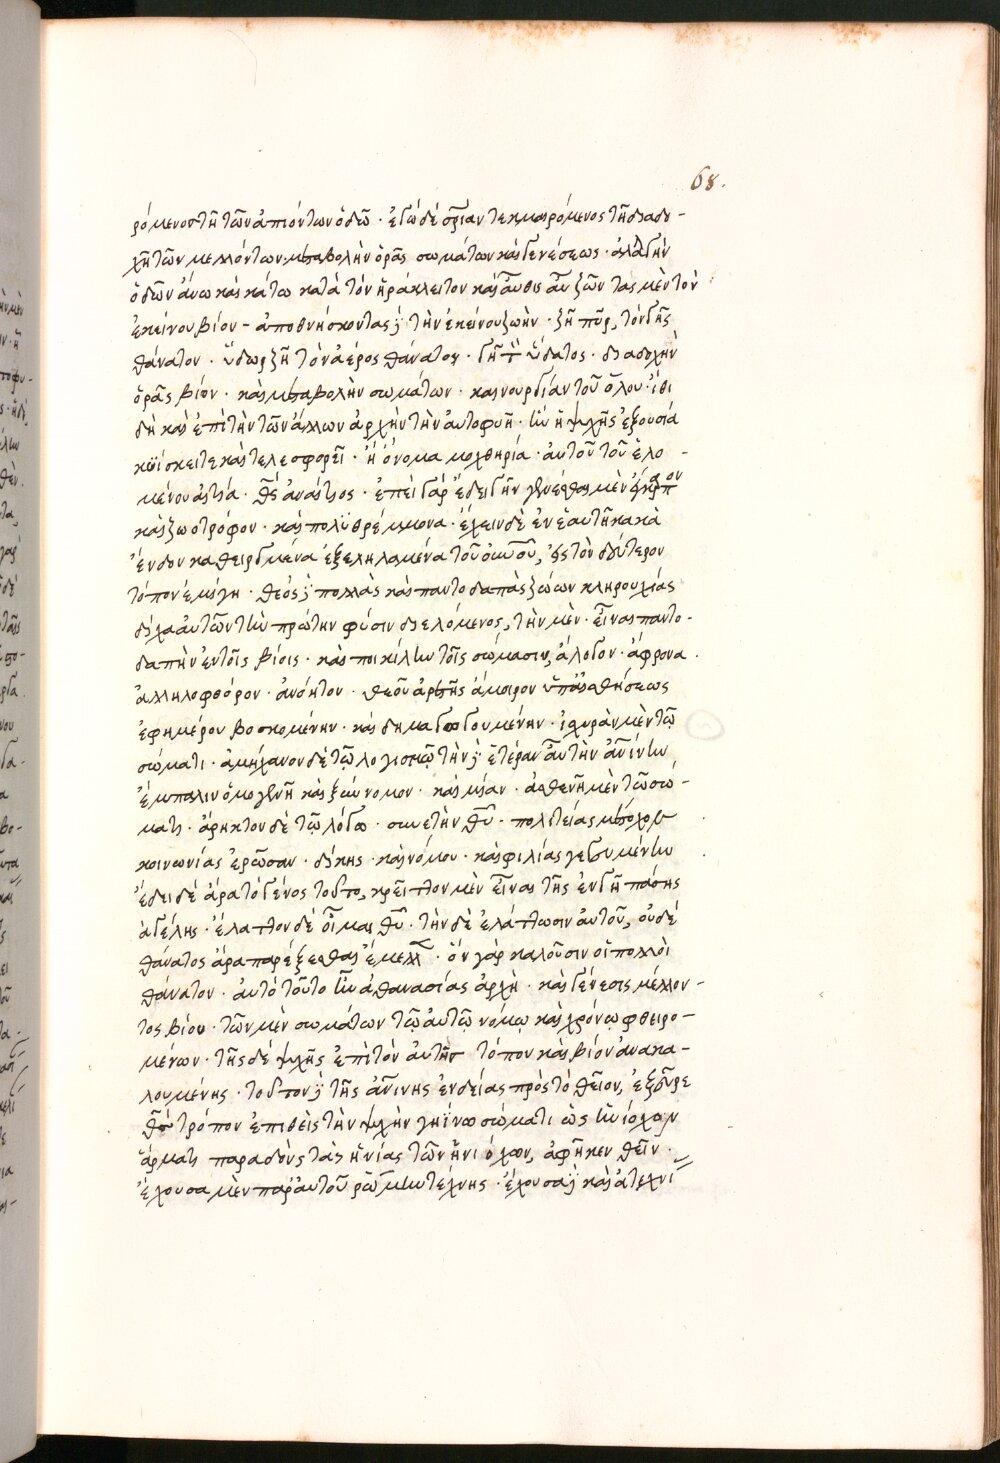 68.
ρόμενος τῆ τῶν ἀπιόντων ὁδῶ · ἐγὼ δὲ σ̅ριαν τεκμαιρόμενος τῆ διαδο-
χῆ τῶν μελλόντων· μεταβολὴν ὁρᾶς σωμάτων καὶ γενέσεως · ἀλλαγὴν
ὁδῶν ἄνω καὶ κάτω κατὰ τὸν ἡράκλειτον καὶ αὖθις αὖ ζῶντας μὲν τὸν
ἐκείνου βίον - ἀποθνήσκοντας δὲ τὴν ἐκείνου ζωήν · ζῆ πῦρ, τὸν γῆς
θάνατον · ὕδωρ ζῆ τὸν ἀέρος θάνατον · γῆ τὸν ὕδατος · διαδοχὴν
ὁρᾶς βίου · καὶ μεταβολὴν σωμάτων · καινουργίαν τοῦ ὅλου · ἴθι
δὴ καὶ ἐπὶ τὴν τῶν ἄλλων ἀρχὴν τὴν αὐτοφυῆ · ἣν ἡ ψυχῆς ἐξουσία
κυΐσκει τε καὶ τελεσφορεῖ · ἡ ὄνομα μοχθηρία · αὐτοῦ τοῦ ἑλο -
μένου αἰτία · θεὸς ἀναίτιος · ἐπεὶ γὰρ ἔδει γῆν γενέσθαι μὲν φυτὸν
καὶ ζωοτρόφον · καὶ πολυθρέμμονα · ἔχειν δὲ ἐν ἑαυτῆ κακὰ
ἔνδον καθειργμένα ἐξεληλαμένα τοῦ οὐρανοῦ, ἐς τὸν δεύτερον
τόπον ἐμίγη · θεὸς δὲ πολλὰς καὶ παντοδαπὰς ζώων κληρουχίας
δίχα αὐτῶν τὴν πρώτην φύσιν διελόμενος, τὴν μὲν · εἶναι παντο-
δαπὴν ἐν τοῖς βίοις · καὶ ποικίλην τοῖς σώμασιν, ἄλογον · ἄφρονα ·
ἀλληλοφθόρον · ἀνόητον · θεοῦ ἀρετῆς ἄμοιρον ὑπὸ αἰσθήσεως
ἐφημέρου βοσκομένην · καὶ δημαγωγουμένην · ἰσχυρὰν μὲν τῷ
σώματι · ἀμήχανον δὲ τῷ λογισμῷ τὴν δὲ ἑτέραν αὖ τὴν ἀνθρωπίνην
ἔμπαλιν ὁμογενῆ καὶ ξύννομον · καὶ μίαν · ἀσθενῆ μὲν τῶ σώ-
ματι · ἄρηκτον δὲ τῷ λόγω · συνετὴν θεοῦ · πολιτείας μέτοχον
κοινωνίας ἐρῶσαν · δίκης · καὶ νόμου · καὶ φιλίας γευσαμένην
ἔδει δὲ ἄρα τὸ γένος τοῦτο, κρεῖττον μὲν εἶναι τῆς ἐν γῆ πάσης
ἀγέλης · ἔλαττον δὲ οἶμαι θεοῦ · τὴν δὲ ἐλάττωσιν αὐτοῦ, οὐδὲ
θάνατος ἄρα παρέξεσθαι ἔμελλεν · ὃν γὰρ καλοῦσιν οἱ πολλοὶ
θάνατον · αὐτὸ τοῦτο ἦν ἀθανασίας ἀρχὴ · καὶ γένεσις μέλλον -
τος βίου · τῶν μὲν σωμάτων τῷ αὐτῶ νόμῳ καὶ χρόνῳ φθειρο-
μένων · τῆς δὲ ψυχῆς ἐπὶ τὸν αὐτῆς τόπον καὶ βίον ἀνακα-
λουμένης · τοῦτον δὲ τῆς ἀνθρωπίνης ἐνδείας πρὸς τὸ θεῖον, ἐξεῦρε
θεὸς τρόπον ἐπιθεὶς τὴν ψυχὴν γηΐνω σώματι ὡς ἡνίοχον
ἅρματι παραδοὺς τὰς ἡνίας τῶν ἡνιόχων, ἀφῆκεν θεῖν ·
ἔχουσα μὲν παρ' αὐτοῦ ῥώμην τέχνης · ἔχουσα δὲ καὶ ἀτεχνί-